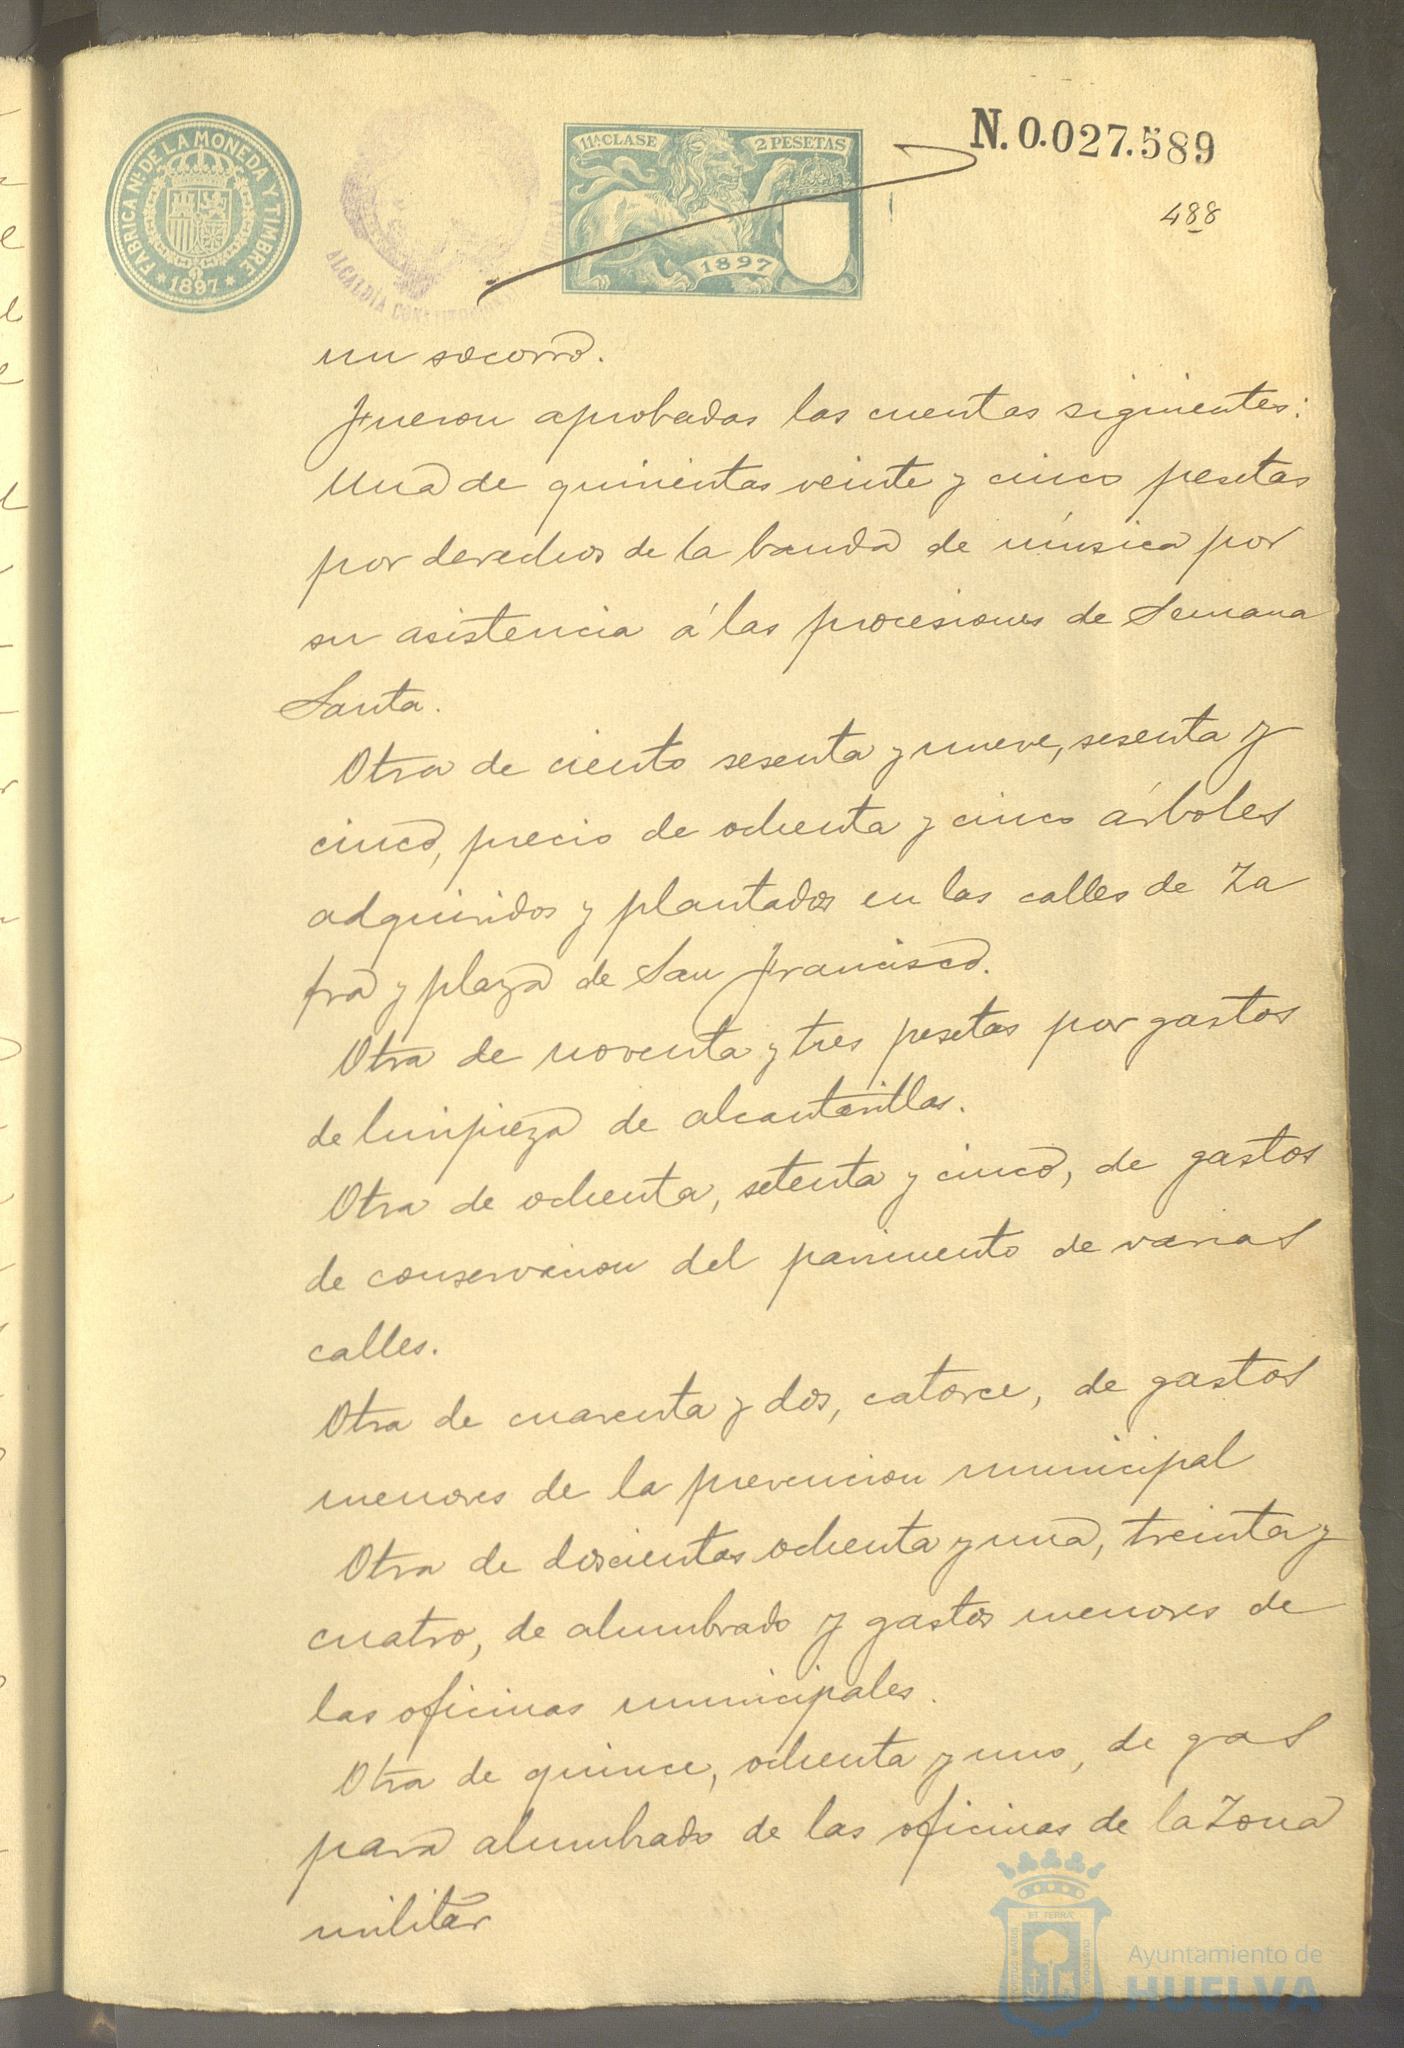 FABRICA Nal DE LA MONEDA Y TIMBRE
* 1897 *
ALCALDÍA
11ª CLASE
2 PESETAS
1897
N. 0.027.589
488
un socorro.
Fueron aprobadas las cuentas siguientes:
Una de quinientas veinte y cinco pesetas
por derechos de la banda de música por
su asistencia á las procesiones de Semana
Santa.
Otra de ciento sesenta y nueve, sesenta y
cinco, precio de ochenta y cinco árboles
adquiridos y plantados en las calles de Za
fra y plaza de San Francisco.
Otra de noventa y tres pesetas por gastos
de limpieza de alcantarillas.
Otra de ochenta, setenta y cinco, de gastos
de conservacion del pavimento de varias
calles.
Otra de cuarenta y dos, catorce, de gastos
menores de la prevencion municipal
Otra de doscientas ochenta y una, treinta y
cuatro, de alumbrado y gastos menores de
las oficinas municipales.
Otra de quince, ochenta y uno, de gas
para alumbrado de las oficinas de la Zona
militar
Ayuntamiento de
HUELVA